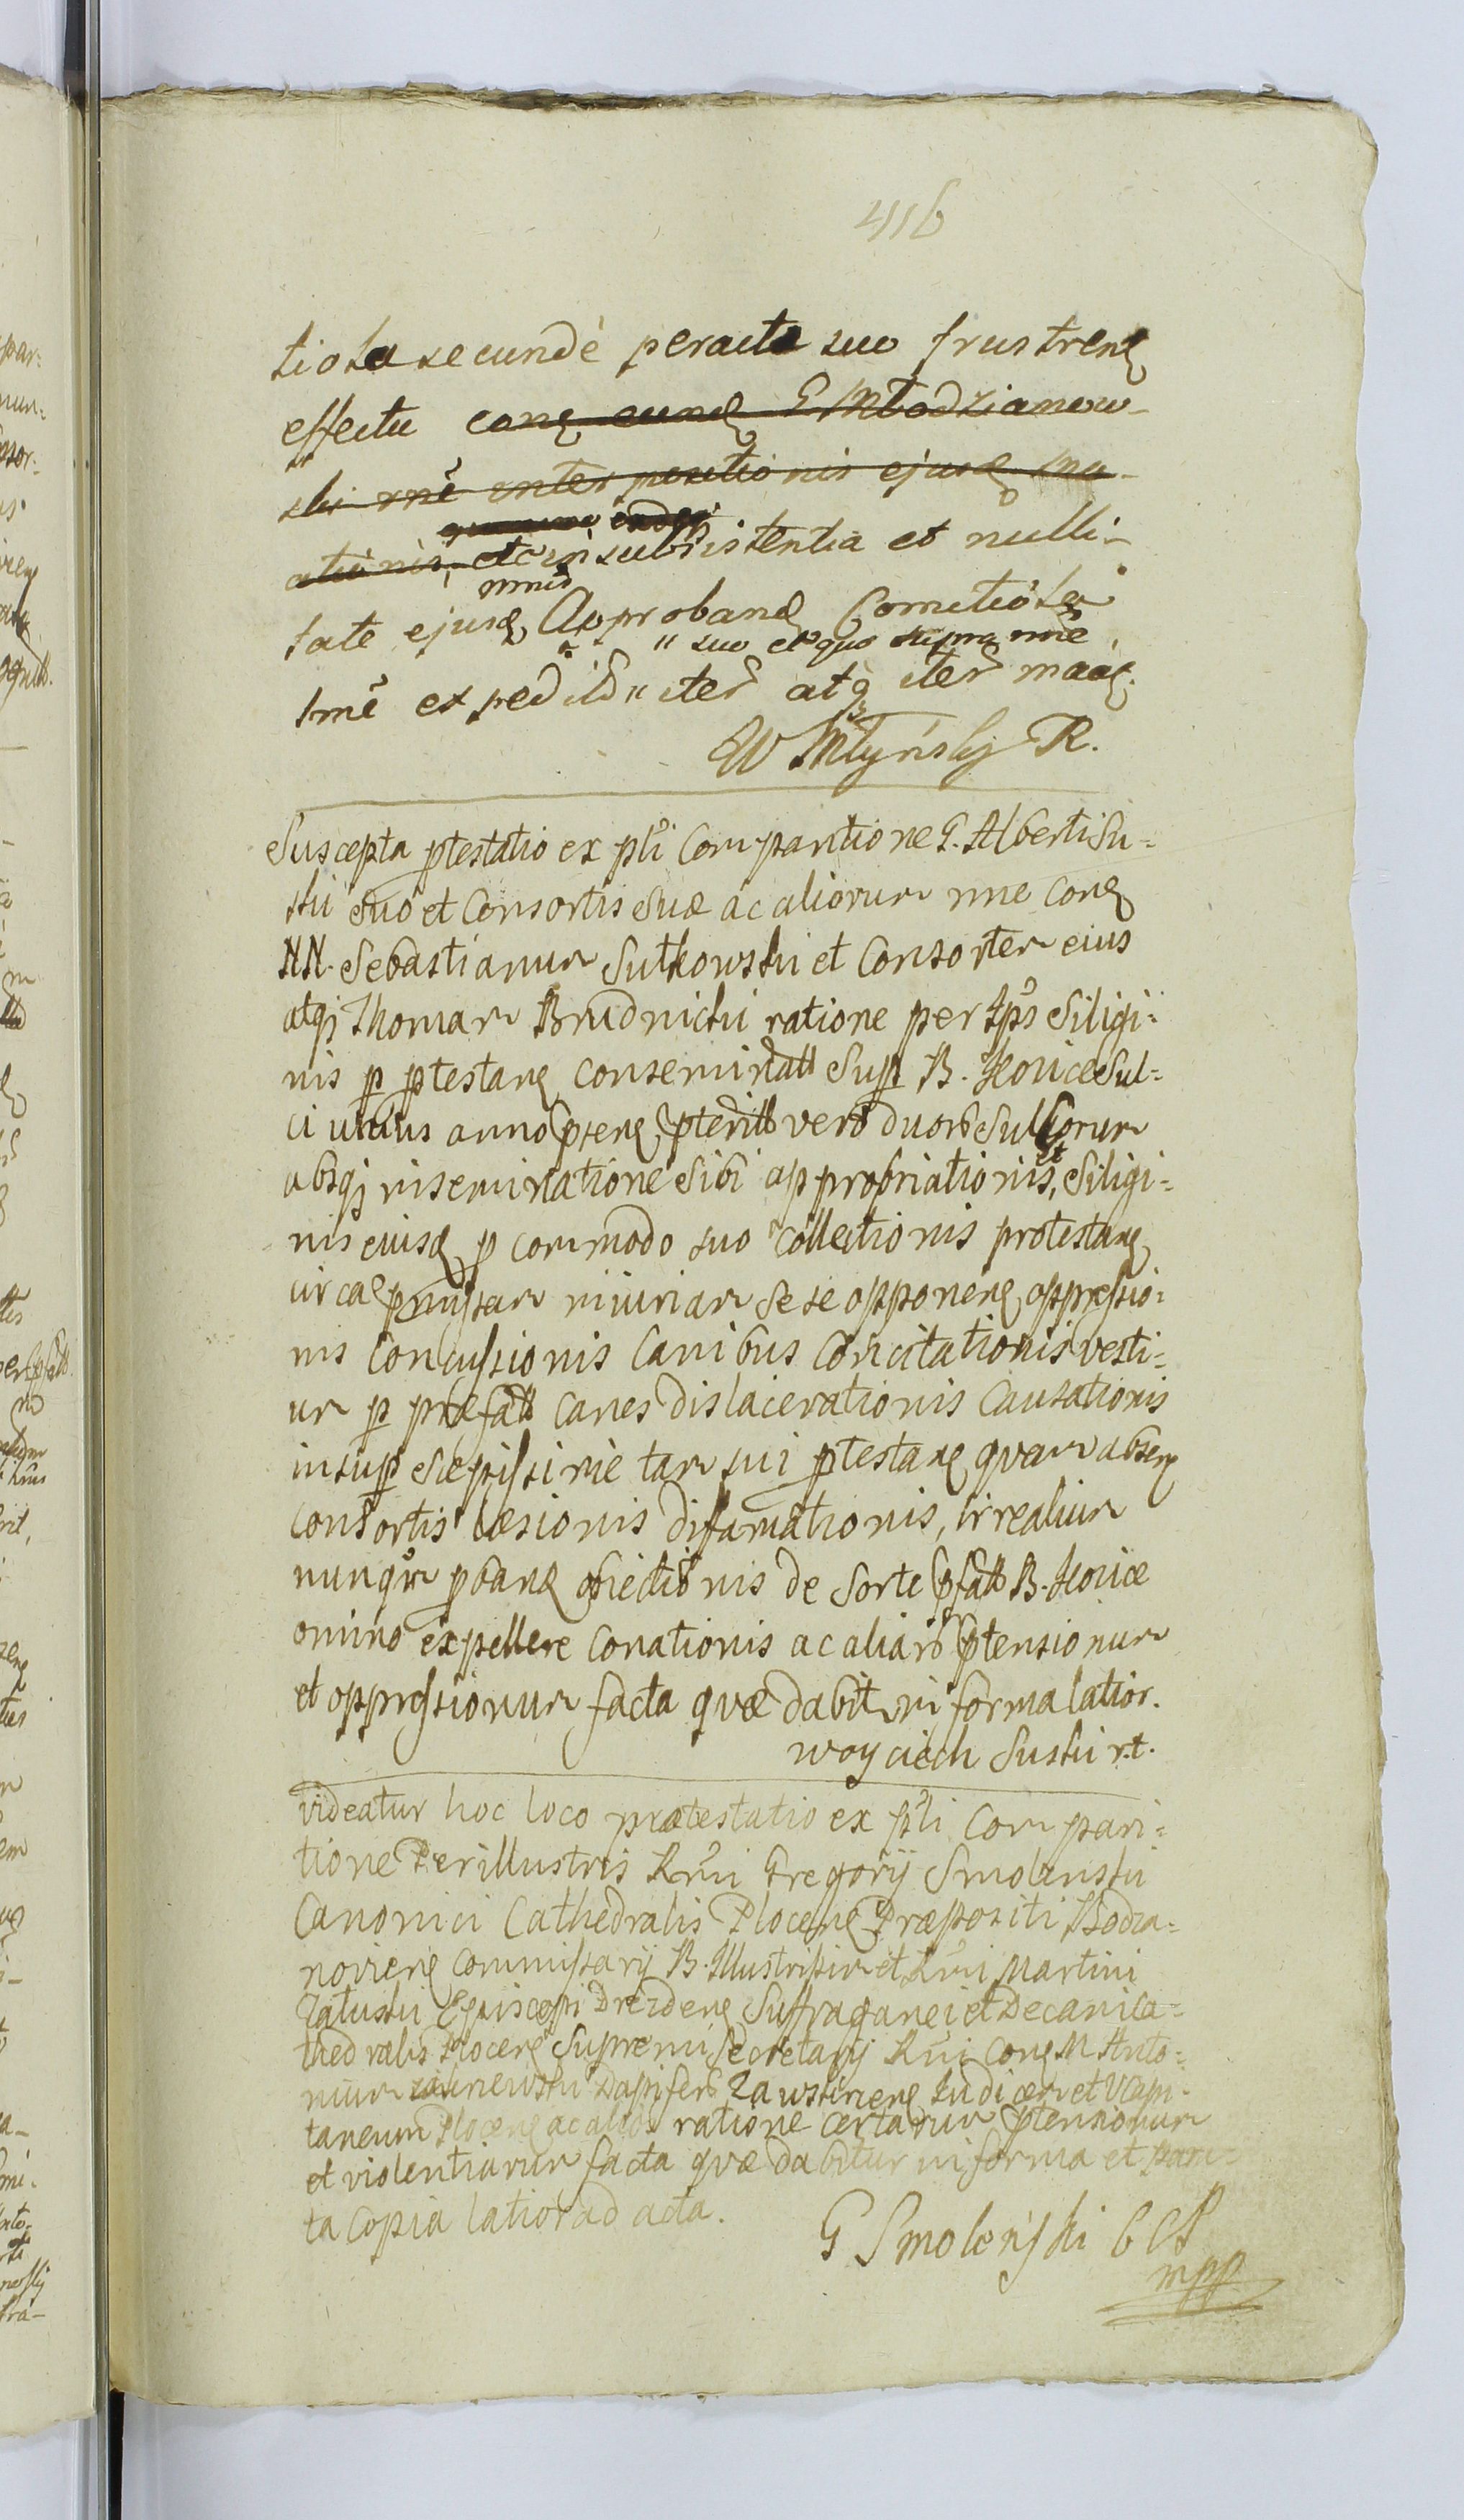 416
tiota secundè peracta suo frustrenę
effectu conę eundę G Młodzianow-
ski nnē interpositionis ejusdę
ationis, et insubsistentia et nulli-
nnis
tate ejusdę Approbandę Cometiota
" suo et quo supra nnē
tmē expedild " iterd atq̨ iterd
W Młynsky R.
Suscepta ptestatio ex płi Comparitione G. Alberti Su=
ski suo et Consortis suæ ac aliorum nne conę
NN. Sebastianum Sutkowski et Consortem eius
atqꝫ Thomam Brudnicki ratione per Ips̃ Siligi=
nis p ptestanę conseminatt Sup B. Hovice Sul=
ci unius anno psenę pteritt vero duorꝫ Sulcorum
absqꝫ inseminatione Sibi appropriationis, et Siligi=
nis eiusdę p commodo suo collectionis protestanę
circa pmissam iniuriam sese opponenę oppressio=
nis Concussionis Canibus Concitationis vesti=
um p præfatt canes dislacerationis Causationis
insup sæpissime tam sui ptestanę quam absenę
consortis læsionis difamationis, irrealium
nunqm pbandę obiectionis de sorte pfatt B. Hovice
omino expellere conationis ac aliarꝫ ptensionum
et oppressionum facta quæ dabit in forma latior.
woyciech Suski r.t.
videatur hoc loco protestatio ex płi Compari=
tione Perillustris Rńdi Gregorij Smolenski
Canonici Cathedralis Plocenę Præpositi Bodza=
novienę Commissarij B. Illustrissim et Rńdi Martini
Załuski Episcopi Drezdenę Suffraganei et Decani Ca=
thedralis Plocenę Supremi Secretarij Rńi conę M Anto=
nium Dapiferꝫ Zawskrinenę Iudicem et VCapi=
taneum Plocenę ac alios ratione certarum ptensionum
et violentiarum facta quæ dabitur in forma et pari=
ta copia latior ad acta.
G Smoleński C C P
mpp